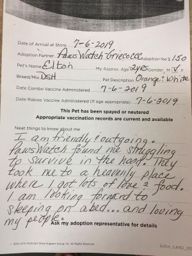 Date of Arrival at Store 7-6-2019
Adoption Partner PawsWatch Adoption fee $ 150
Pet's Name Elton My Approx. Age 2yrs Gender M
Breed/Mix DSH Pet Description Orange & White
Date Combo Vaccine Administered 7-6-2019
Date Rabies Vaccine Administered (if age appropriate) 7-6-2019
This Pet has been spayed or neutered
Appropriate vaccination records are current and available
Neat things to know about me
I am friendly & outgoing.
PawsWatch found me struggling
to survive in the heat. They
took me to a heavenly place
where I got lots of love & food.
I am looking forward to
sleeping on a bed... and loving
my people.
Ask my adoption representative for details